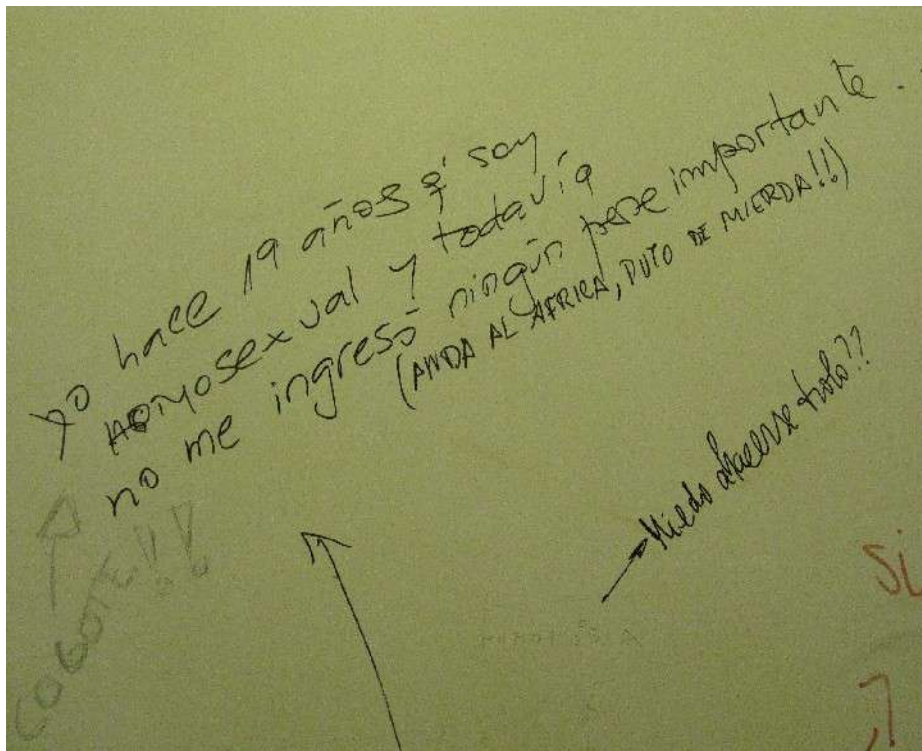 yo hace 19 años q' soy
homosexual y todavía
no me ingresó ningún pene importante.
(ANDA AL AFRICA, PUTO DE MIERDA!!)
Miedo a hacerse trolo??
COGOTE!!
Si